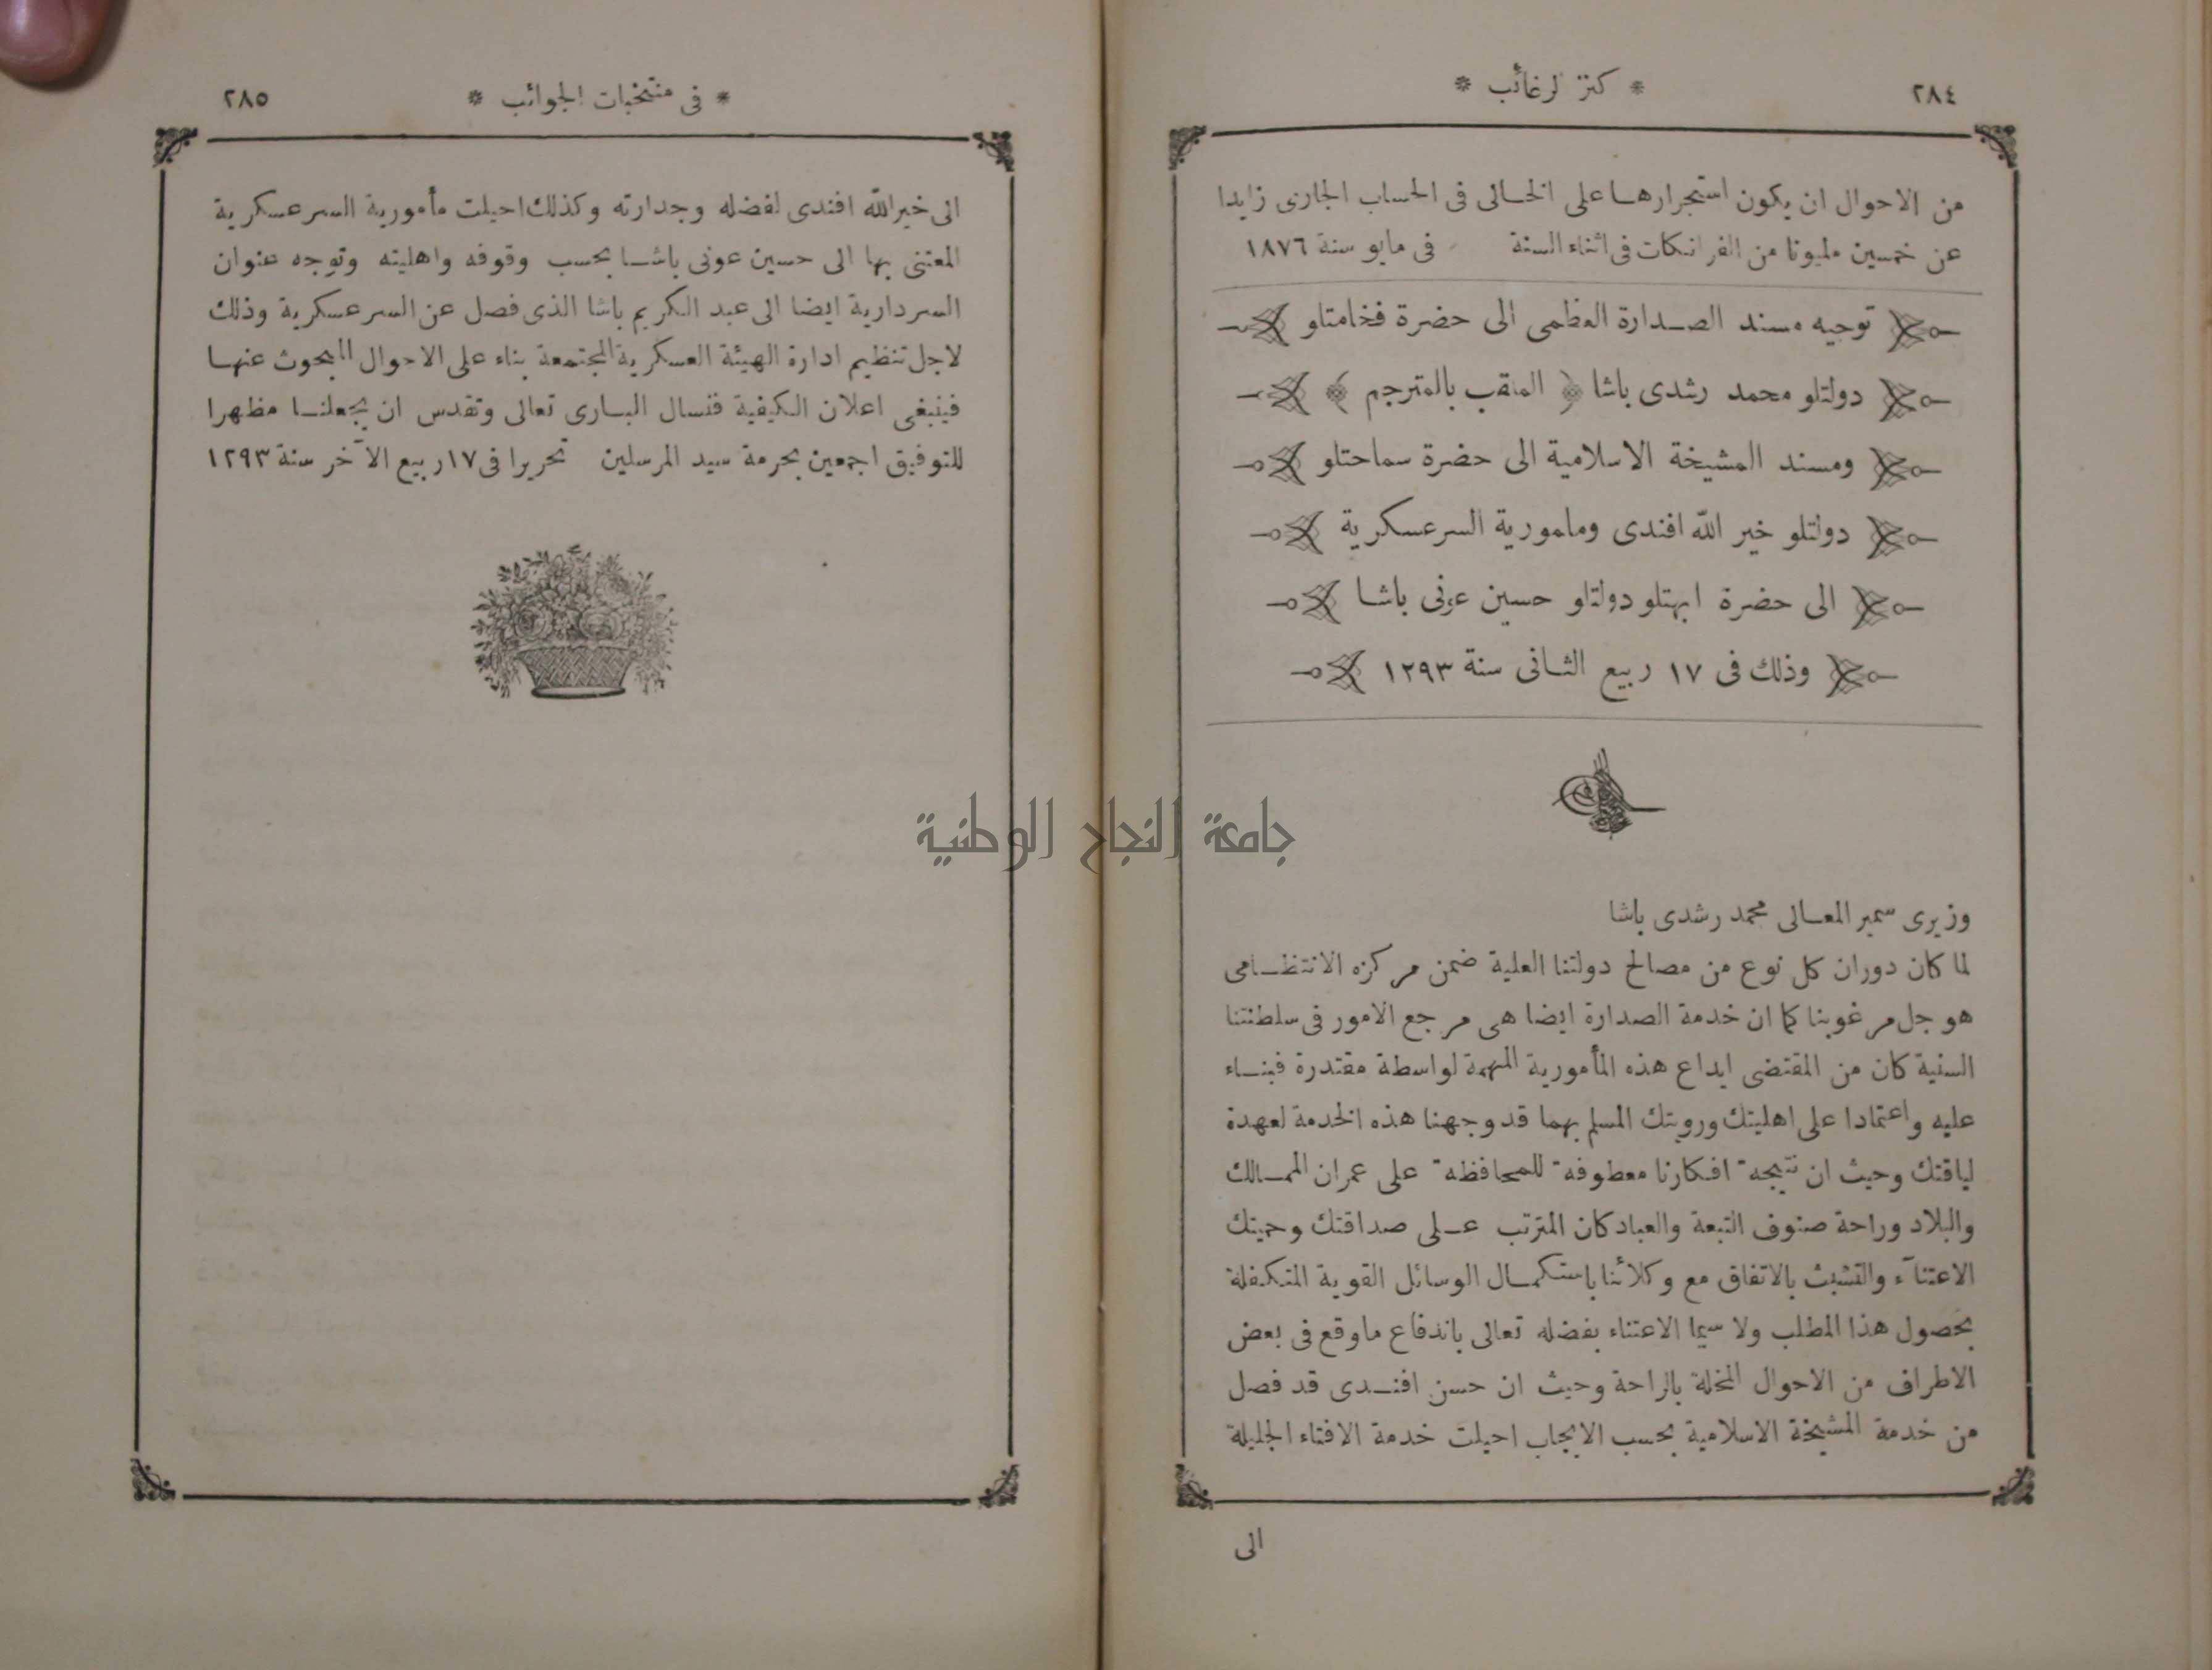 ٢٨٤
* كنز الرغائب *
من الاحوال ان يكون استجرارها على الخالى فى الحساب الجارى زايدا
عن خمسين مليونا من الفرانكات فى اثناء السنة فى مايو سنة ١٨٧٦
توجيه مسند الصدارة العظمى الى حضرة فخامتلو
دولتلو محمد رشدى باشا ﴿ الملقب بالمترجم ﴾
ومسند المشيخة الاسلامية الى حضرة سماحتلو
دولتلو خير الله افندى ومامورية السرعسكرية
الى حضرة ابهتلو دولتلو حسين عونى باشا
وذلك فى ١٧ ربيع الثانى سنة ١٢٩٣
وزيرى سمير المعالى محمد رشدى باشا
لما كان دوران كل نوع من مصالح دولتنا العلية ضمن مركزه الانتظامى
هو جل مرغوبنا كما ان خدمة الصدارة ايضا هى مرجع الامور فى سلطنتنا
السنية كان من المقتضى ايداع هذه المأمورية المهمة لواسطة مقتدرة فبناء
عليه واعتمادا على اهليتك ورويتك المسلم بهما قد وجهنا هذه الخدمة لعهدة
لياقتك وحيث ان نتيجة افكارنا معطوفة للمحافظة على عمران الممالك
والبلاد وراحة صنوف التبعة والعباد كان المترتب على صداقتك وحميتك
الاعتنآء والتشبث بالاتفاق مع وكلائنا باستكمال الوسائل القوية المتكفلة
بحصول هذا المطلب ولا سيما الاعتناء بفضله تعالى باندفاع ما وقع فى بعض
الاطراف من الاحوال المخلة بالراحة وحيث ان حسن افندى قد فصل
من خدمة المشيخة الاسلامية بحسب الايجاب احيلت خدمة الافتاء الجليلة
الى
* فى منتخبات الجوائب *
٢٨٥
الى خير الله افندى لفضله وجدارته وكذلك احيلت مأمورية السرعسكرية
المعتنى بها الى حسين عونى باشا بحسب وقوفه واهليته وتوجه عنوان
السردارية ايضا الى عبد الكريم باشا الذى فصل عن السرعسكرية وذلك
لاجل تنظيم ادارة الهيئة العسكرية المجتمعة بناء على الاحوال المبحوث عنها
فينبغى اعلان الكيفية فنسال البارى تعالى وتقدس ان يجعلنا مظهرا
للتوفيق اجمعين بحرمة سيد المرسلين تحريرا فى ١٧ ربيع الآخر سنة ١٢٩٣
جامعة النجاح الوطنية